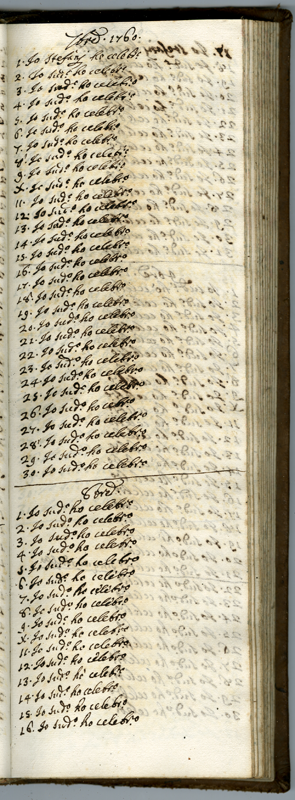 7bre. 1760.
1. Io Stefani ho celebrº
2. Io sudº ho celebrº
3. Io sudº ho celebrº
4. Io sudº ho celebrº
5. Io sudº ho celebrº
6. Io sudº ho celebrº
7. Io sudº ho celebrº
8. Io sudº ho celebrº
9. Io sudº ho celebrº
X. Io sudº ho celebrº
11. Io sudº ho celebrº
12. Io sudº ho celebrº
13. Io sudº ho celebrº
14. Io sudº ho celebrº
15. Io sudº ho celebrº
16. Io sudº ho celebrº
17. Io sudº ho celebrº
18. Io sudº ho celebrº
19. Io sudº ho celebrº
20. Io sudº ho celebrº
21. Io sudº ho celebrº
22. Io sudº ho celebrº
23. Io sudº ho celebrº
24. Io sudº ho celebrº
25. Io sudº ho celebrº
26. Io sudº ho celebrº
27. Io sudº ho celebrº
28. Io sudº ho celebrº
29. Io sudº ho celebrº
30. Io sudº ho celebrº
8bre.
1. Io sudº ho celebrº
2. Io sudº ho celebrº
3. Io sudº ho celebrº
4. Io sudº ho celebrº
5. Io sudº ho celebrº
6. Io sudº ho celebrº
7. Io sudº ho celebrº
8. Io sudº ho celebrº
9. Io sudº ho celebrº
X. Io sudº ho celebrº
11. Io sudº ho celebrº
12. Io sudº ho celebrº
13. Io sudº ho celebrº
14. Io sudº ho celebrº
15. Io sudº ho celebrº
16. Io sudº ho celebrº